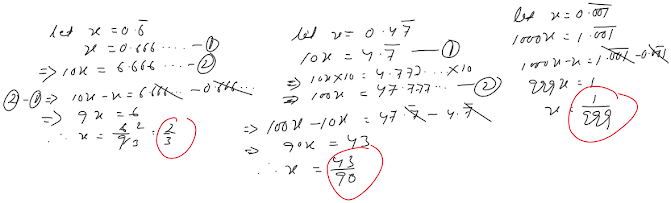 let x = 0.6̅
x = 0.666 ..... — ①
=> 10x = 6.666 ..... — ②
② - ① => 10x - x = 6.666... - 0.666...
=> 9x = 6
∴ x = 6/9 2/3 : 2/3
let x = 0.47̅
10x = 4.7̅ — ①
=> 10x × 10 = 4.777... × 10
=> 100x = 47.777... — ②
=> 100x - 10x = 47.7̅ - 4.7̅
=> 90x = 43
∴ x = 43/90
let x = 0.0̅0̅1̅
1000x = 1.0̅0̅1̅
1000x - x = 1.0̅0̅1̅ - 0.0̅0̅1̅
999x = 1
x = 1/999